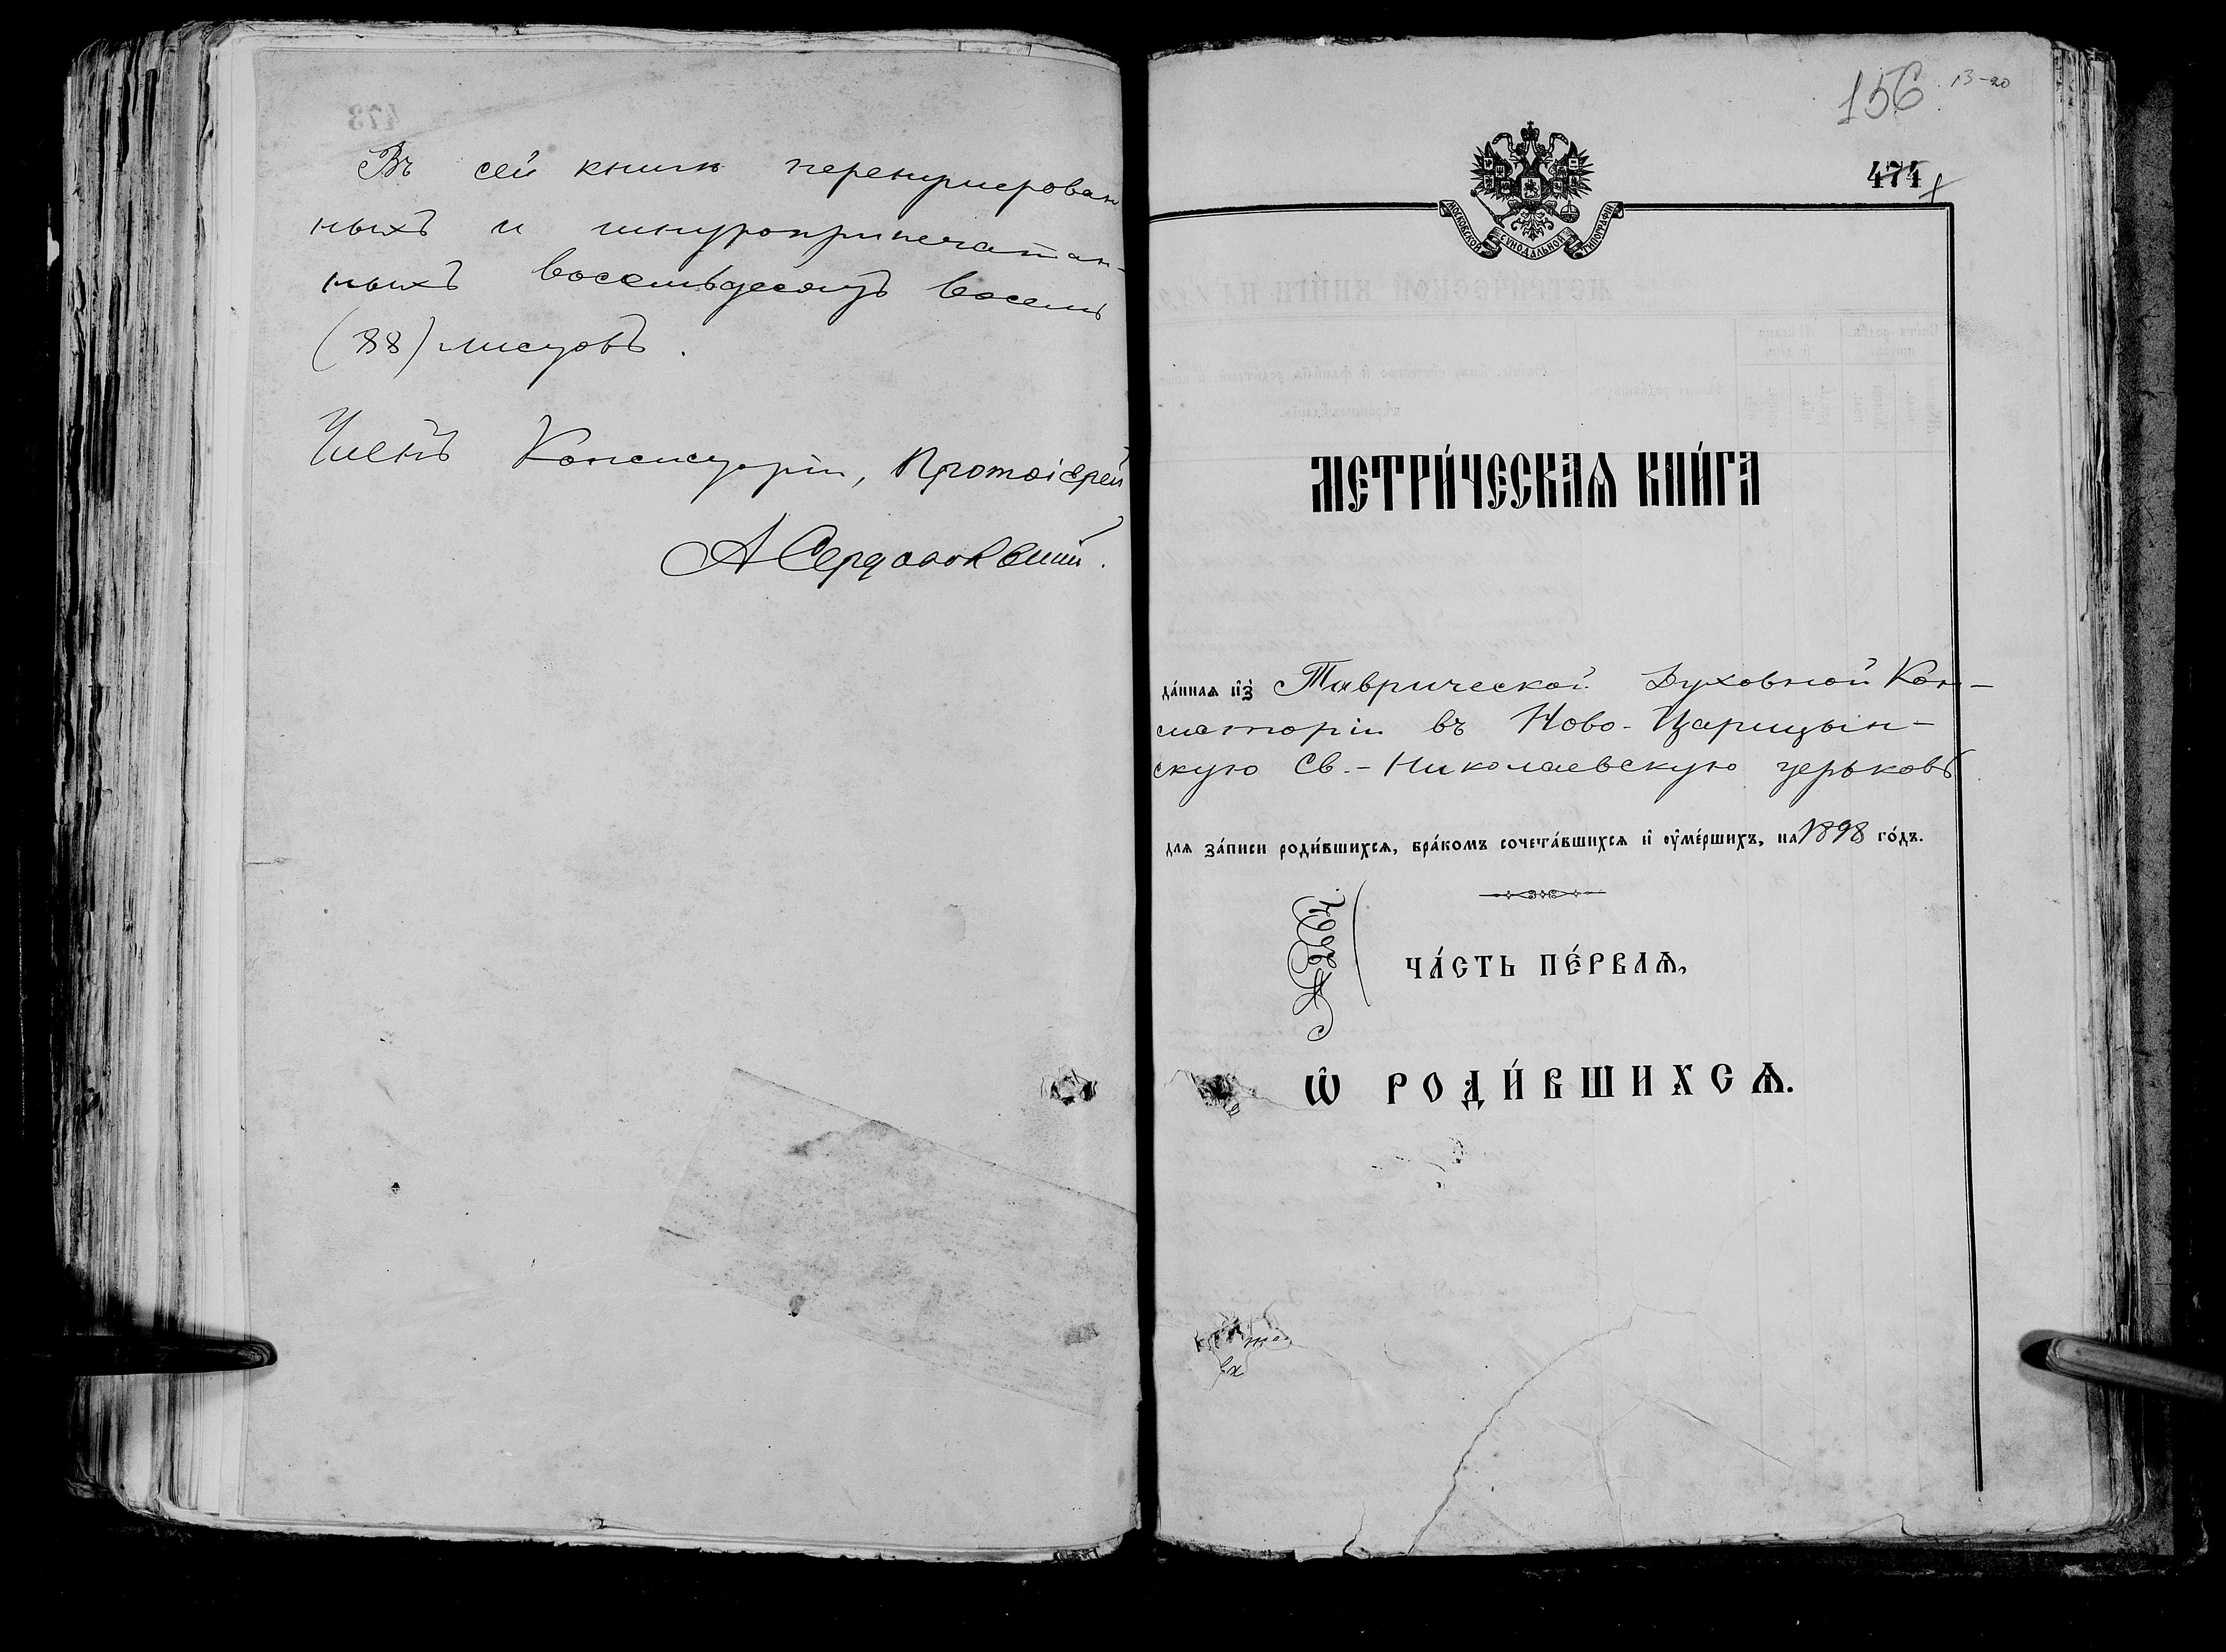 Въ сей книгѣ перенумерован
ныхъ и шнуроприпечатан-
ныхъ восемьдесятъ восемь
(88) листовъ.
Членъ Консисторіи, Протоіерей
156 13-20
474
МОСКОВСКОЙ СѴНОДАЛЬНОЙ ТИПОГРАФІИ
МЕТРИ́ЧЕСКАѦ КНИ́ГА
да́ннаѧ и҆з̾ Таврической Духовной Кон-
систоріи въ Ново-Царицын-
скую Св.-Николаевскую церковь
для за́писи роди́вшихсѧ, бра́комъ сочета́вшихсѧ и҆ ᲂу҆ме́ршихъ, на 1898 го́дъ.
№ 264.
ЧА́СТЬ ПЕ́РВАѦ,
Ѡ҆ РОДИ́ВШИХСѦ.